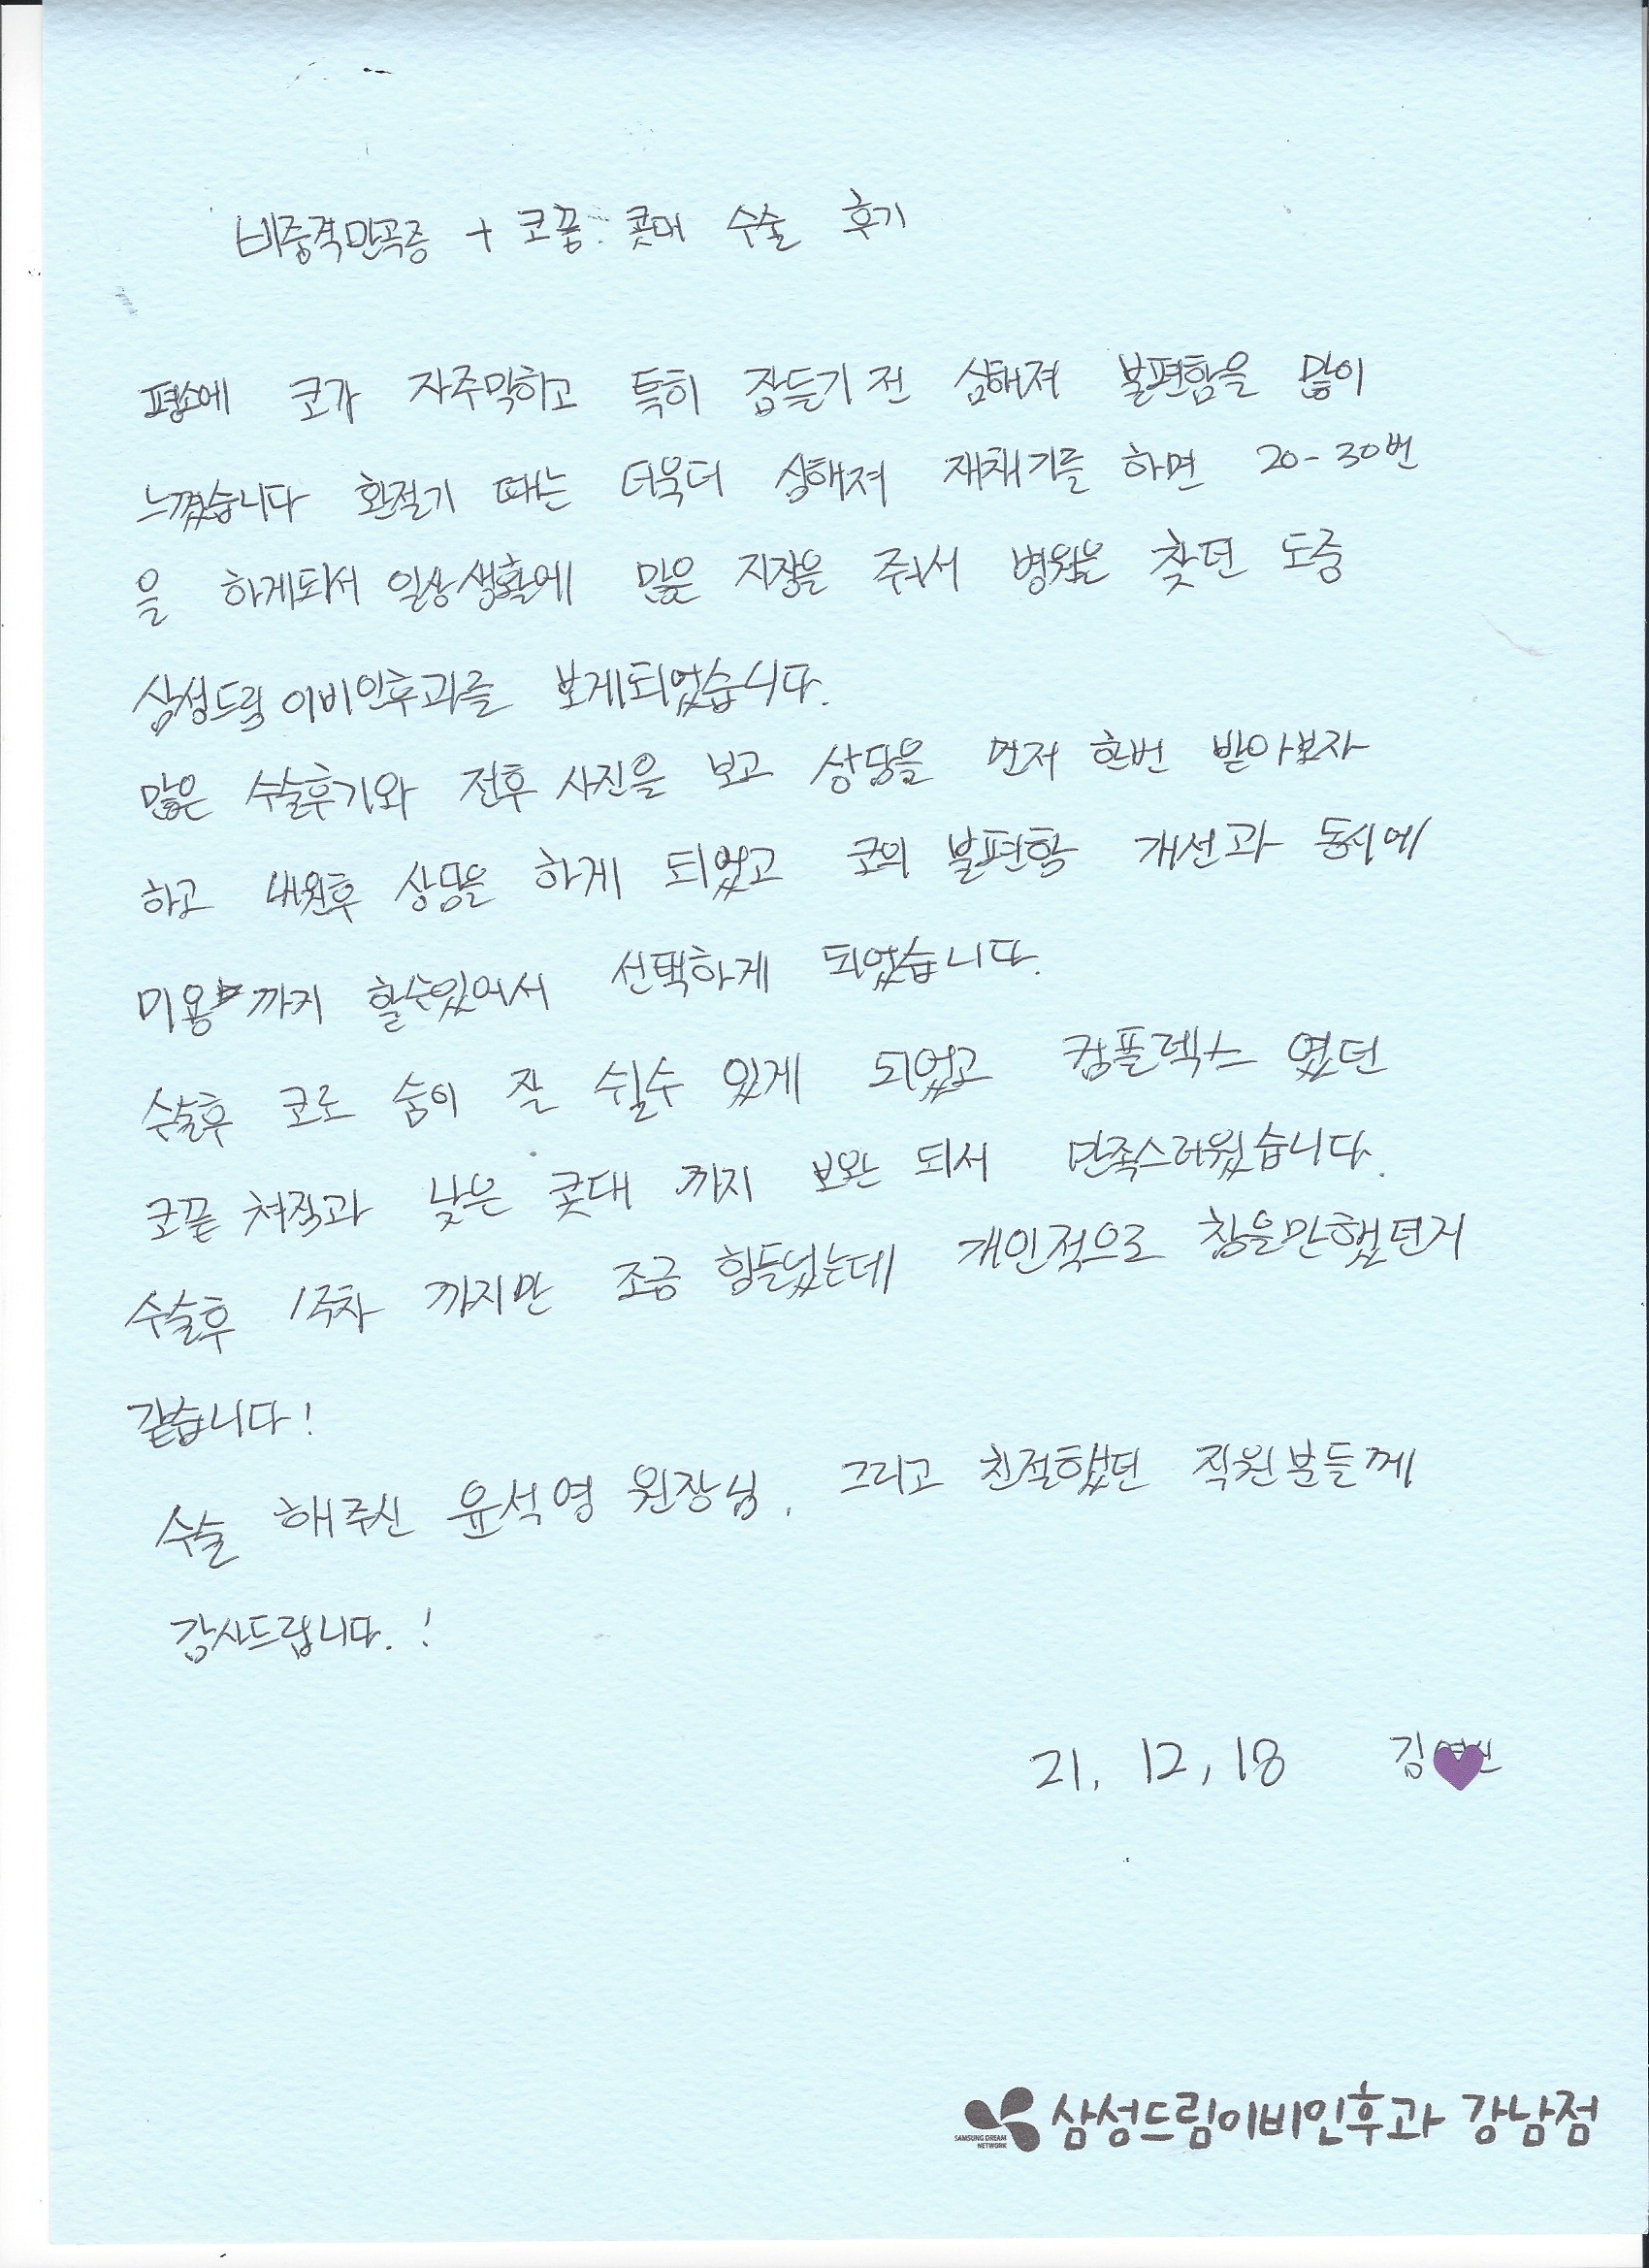 비중격만곡증 + 코끝 콧대 수술 후기
평소에 코가 자주막히고 특히 잠들기 전 심해져 불편함을 많이
느꼈습니다 환절기 때는 더욱더 심해져 재채기를 하면 20-30번
을 하게되서 일상생활에 많은 지장을 줘서 병원을 찾던 도중
삼성드림 이비인후과를 보게되었습니다.
많은 수술후기와 전후 사진을 보고 상담을 먼저 한번 받아보자
하고 내원후 상담을 하게 되었고 코의 불편함 개선과 동시에
미용 까지 할수있어서 선택하게 되었습니다.
수술후 코로 숨이 잘 쉴수 있게 되었고 컴플렉스 였던
코끝 처짐과 낮은 콧대 까지 보완 되서 만족스러웠습니다.
수술후 1주차 까지만 조금 힘들었는데 개인적으로 참을만했던거
같습니다!
수술 해주신 윤석영 원장님, 그리고 친절했던 직원분들께
감사드립니다.!
21. 12, 18 김
SAMSUNG DREAM NETWORK 삼성드림이비인후과 강남점